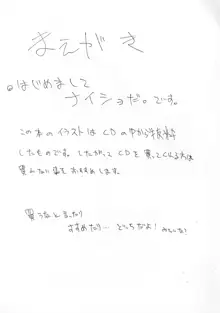 まえがき
はじめまして
ナイショだ。です。
この本のイラストはCDの中から抜粋
したものです。したがってCDを買ってくれる方は
買わない事をおすすめします。
買うなと言ったり
すすめたり… どっちだよ!みたいな!